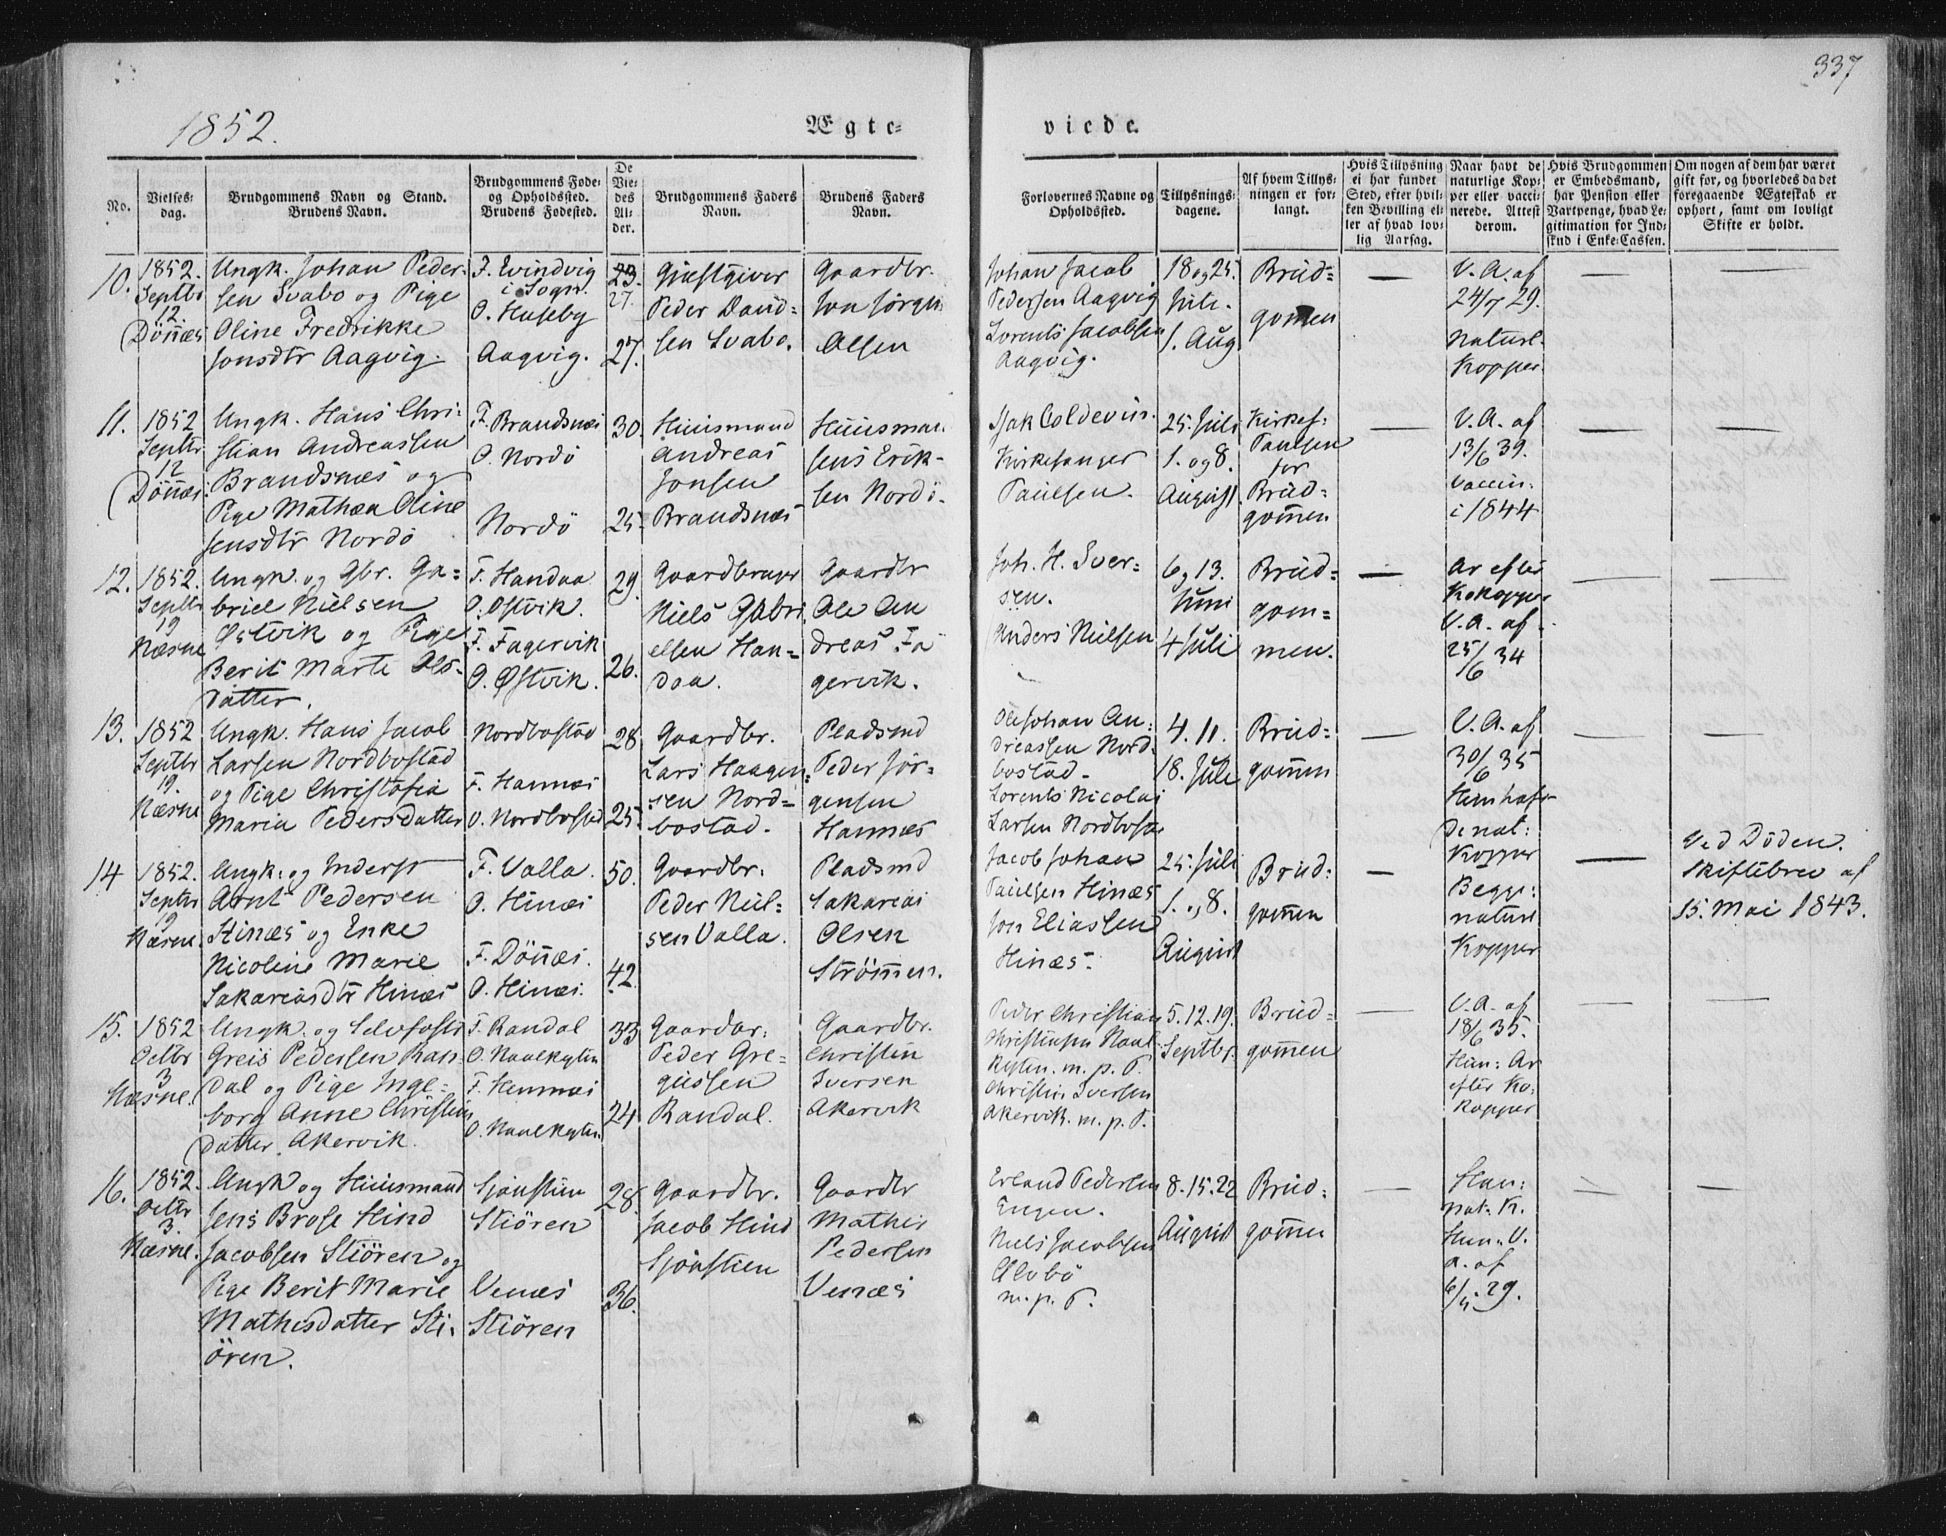 337
1852.
Ægte=
viede.
No.
Vielses-
dag.
Brudgommens Navn og Stand.
Brudens Navn.
Brudgommens Føde-
og Opholdssted.
Brudens Fødested.
De
Vie-
des
Al-
der.
Brudgommens Faders
Navn.
Brudens Faders
Navn.
Forlovernes Navne og
Opholdssted.
Tillysnings-
dagene.
Af hvem Tillys-
ningen er for-
langt.
Hvis Tillysning
ei har fundet
Sted, efter hvil-
ken Bevilling el-
ler af hvad lov-
lig Aarsag.
Naar havt de
naturlige Kop-
per eller vacci-
nerede. Attest
derom.
Hvis Brudgommen
er Embedsmand,
har Pension eller
Vartpenge, hvad Le-
gitimation for Ind-
skud i Enke-Cassen.
Om nogen af dem har været
gift før, og hvorledes da det
foregaaende Ægteskab er
ophørt, samt om lovligt
Skifte er holdt.
10.
1852.
Septbr
12.
Dönnæs
Ungk. Johan Peder-
sen Svabo og Pige
Oline Fredrikke
Jonsdtr Aagvig.
F. Evindvig
i Sogn.
O. Huseby
Aagvig.
23.
27.
27.
Gjæstgiver
Peder David-
sen Svabo.
Gaardbr.
Jon Jörgen
Olsen
Johan Jacob
Pedersen Aagvig
Lorents Jacobsen
Aagvig.
18 og 25.
Juli.
1. Aug
Brud-
gomen
V. A. af
24/7 29.
Naturl.
Kopper.
11.
1852
Septbr
12
Dönnæs.
Ungk. Hans Chri-
stian Andreassen
Brandsnæs og
Pige Mathea Oline
Jensdtr Nordö
F. Brandsnæs
O. Nordö
Nordö
30.
25.
Huusmand
Andreas
Jonsen
Brandsnæs
Huusman
Jens Erik-
sen Nordö.
Isak Coldevin.
Kirkesanger
Paulsen.
25. Juli
1. og 8.
August.
Kirkes.
Paulsen
for
Brud-
gomen
V. A. af
13/6 39.
vaccin.
i 1844
12.
1852.
Septbr
19
Næsne
Ungk. og Gbr. Ga-
briel Nielsen
Østvik og Pige
Berit Marte Ols-
Datter.
F. Handaa
O. Østvik.
F. Fagervik
O. Østvik.
29.
26.
Gaardbruger
Niels Gabri
elsen Han-
daa.
Gaardbr
Ole An
dreas Fa
gervik.
Joh. H. Iver-
sen.
Anders Nielsen
6 og 13.
Juni
4 Juli
Brud-
gom-
men.
Ar efter
Kokopper
V. A. af
25/6 34
13.
1852
Septbr
19.
Næsne
Ungk. Hans Jacob
Larsen Nordbostad
og Pige Christofia
Maria Pedersdatter
Nordbostad
F. Hannæs
O. Nordbostad
28
25.
Gaardbr.
Lars Haagen-
sen Nord-
bostad.
Pladsmd
Peder Jör-
gensen
Hannæs
Ole Johan An-
dreassen Nord-
bostad.
Lorents Nicolai
Larsen Nordbostad
4. 11.
18. Juli
Brud-
gomen
V. A. af
30/6 35
Hun hafv-
de nat:
Kopper
14
1852.
Septbr
19
Næsne.
Ungk. og Inderst
Arnt Pedersen
Hinæs og Enke
Nicoline Marie
Sakariasdtr Hinæs
F. Valla.
O. Hinæs
F. Dönnæs.
O. Hinæs.
50.
42.
Gaardbr.
Peder Niel-
sen Valla.
Pladsmd
Sakarias
Olsen
Strömen.
Jacob Johan
Paulsen Hinæs
Jon Eliassen
Hinæs.
25. Juli
1. og 8.
August
Brud-
gomen
Begge:
naturl
Kopper
Ved Döden.
Skiftebrev af
15. Mai 1843.
15.
1852
Octbr
3
Næsne.
Ungk. og Selvfoster
Greis Pedersen Ran-
dal og Pige Inge-
borg Anne Christin
Datter Akervik.
F. Randal
O.
F. Hemnæs
O.
33
24
Gaardbr.
Peder Gre-
giussen
Randal.
Gaardbr.
Christin
Iversen
Akervik
Peder Christian
m. p. P.
Christin Iversen
Akervik. m. p. P.
5. 12. 19.
Septbr.
Brud-
gomen
V. A. af
18/6 35.
Hun: Ar
efter Ko-
kopper
16.
1852.
Octbr
3.
Næsne.
Ungk og Huusmand
Jens Brose Hind
Jacobsen Stiören og
Pige Berit Marie
Mathisdatter Sti-
ören.
Sjonstien
Stiören
Venæs
Stiören
28.
36.
Gaardbr.
Jacob Hind
Sjonstien
Gaardbr
Mathis
Pedersen
Venæs
Erland Pedersen
Engen.
Niels Jacobsen
m. p. P.
8. 15. 22
August
Brud-
gomen
Han:
nat. K.
Hun. V.
A. af
29.